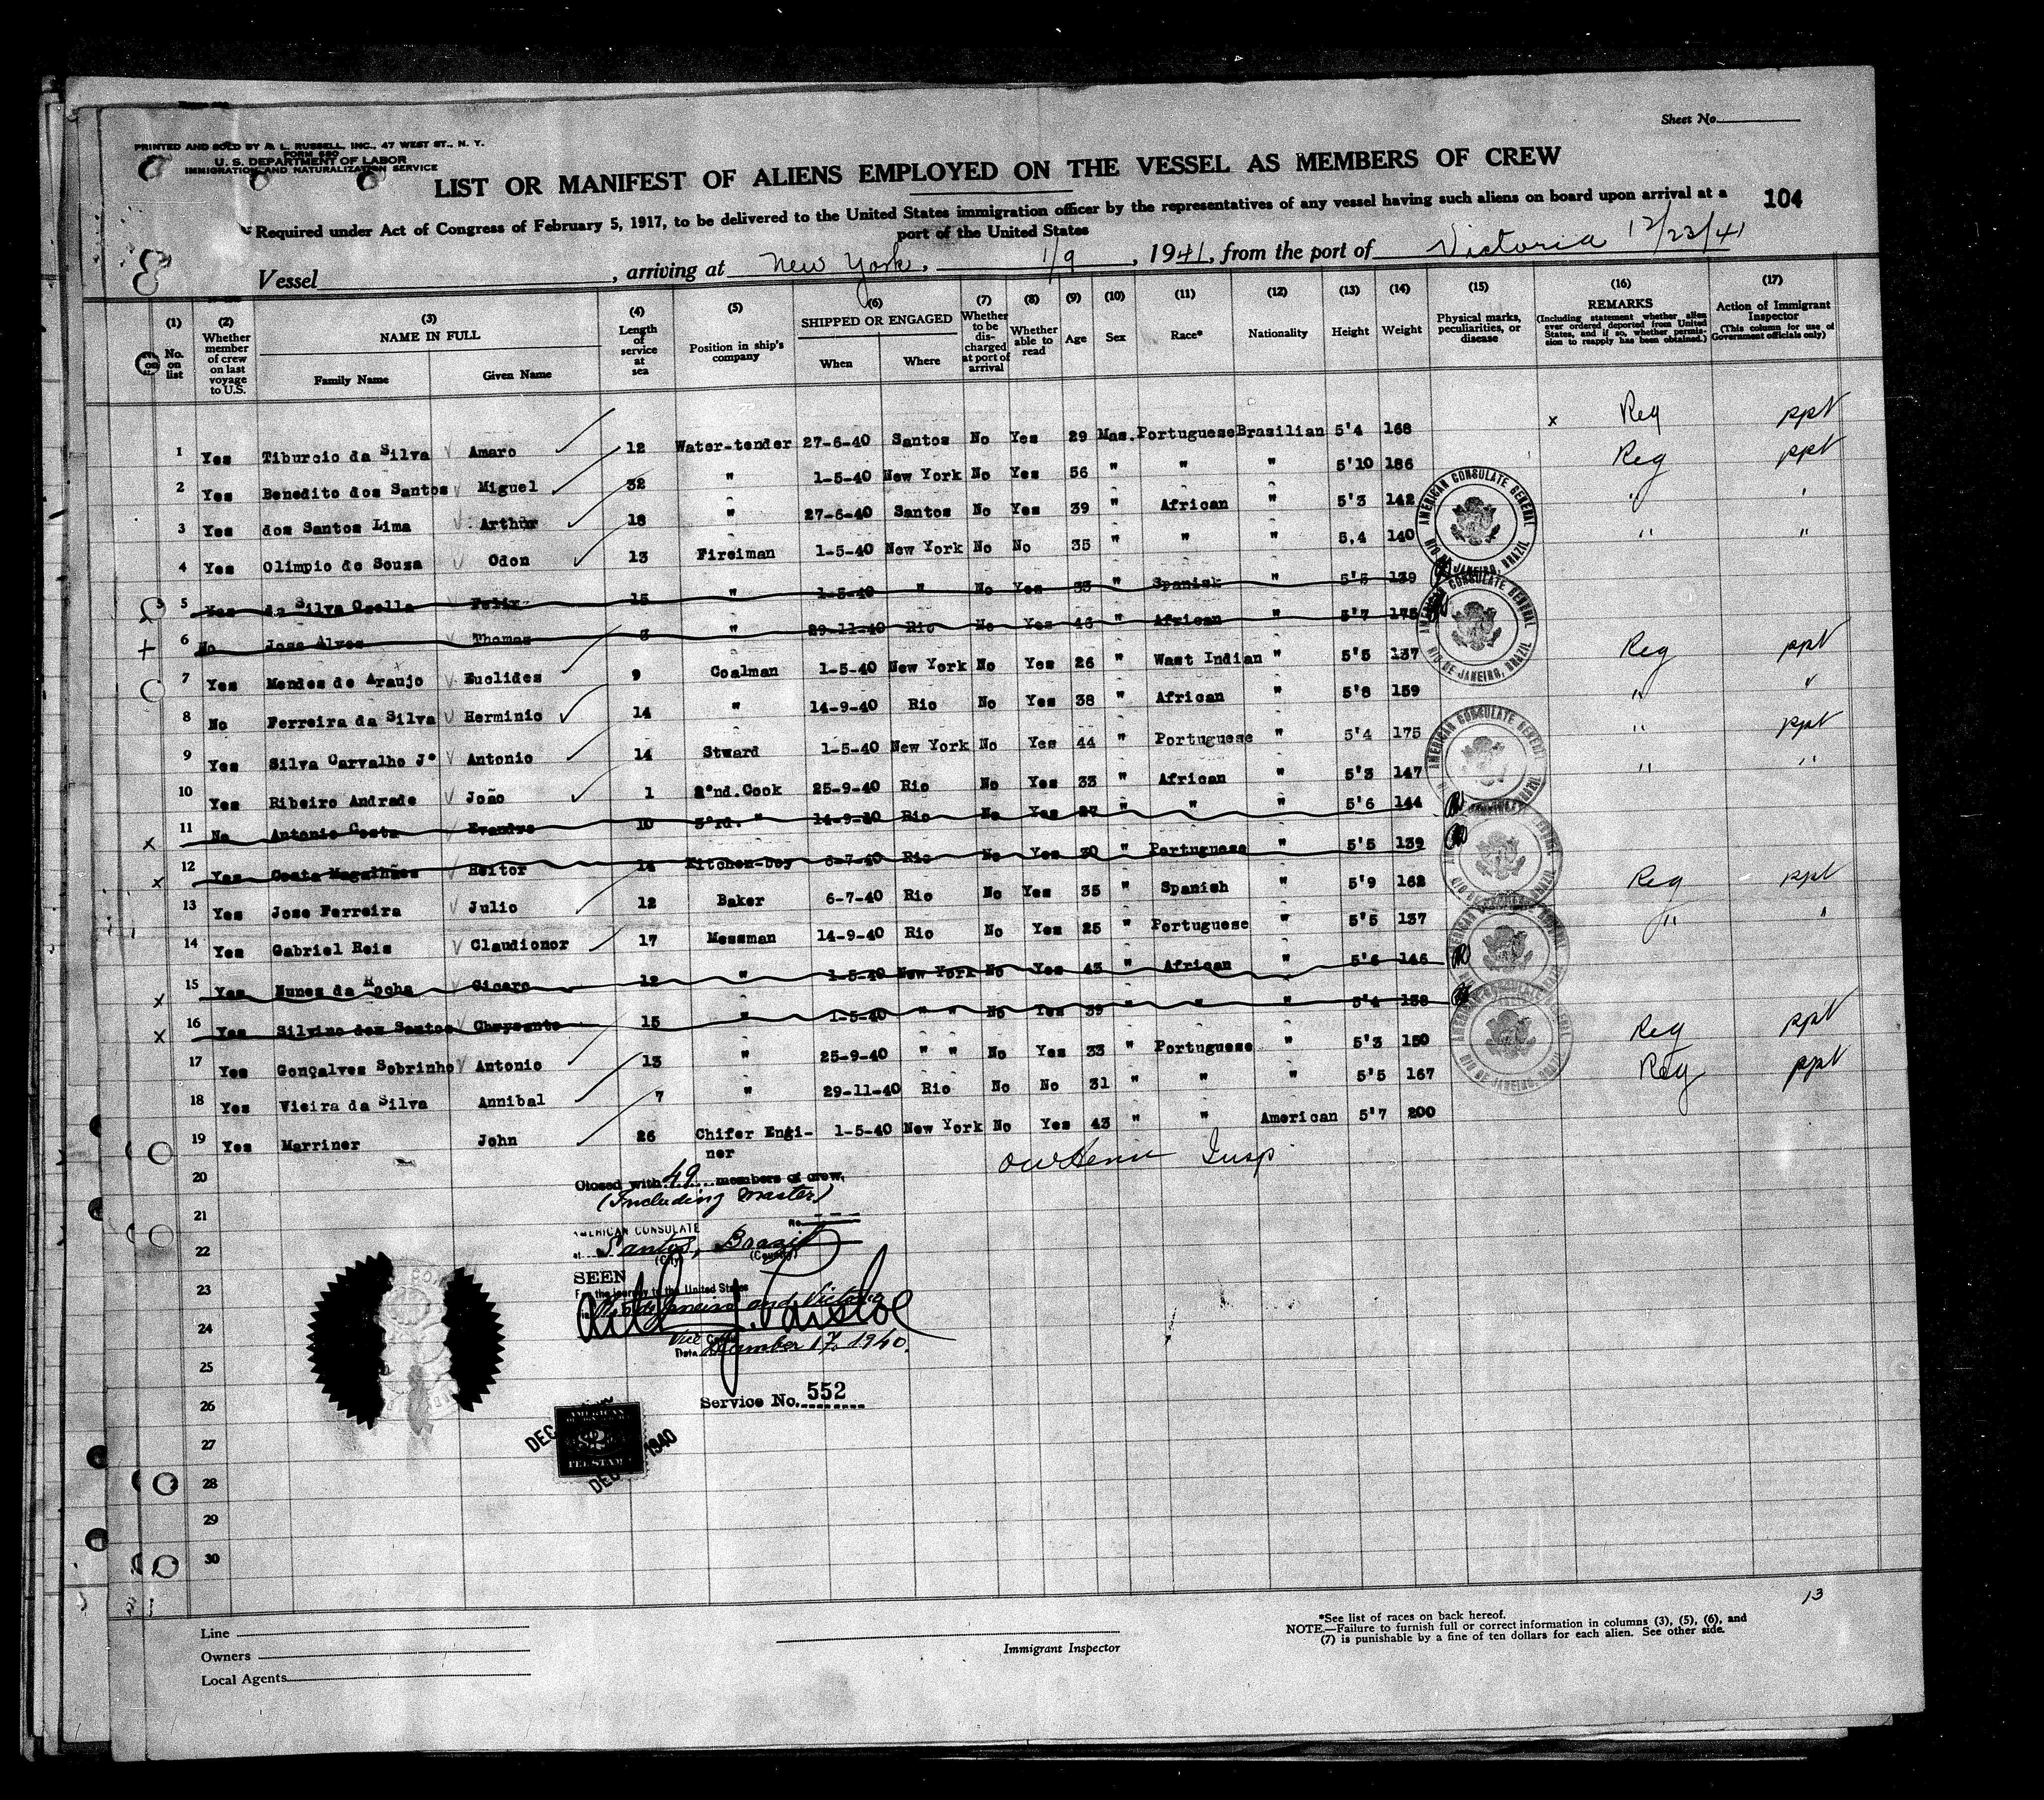 Sheet No.
PRINTED AND SOLD BY A. L. RUSSELL, INC., 47 WEST ST., N. Y.
FORM 680
U. S. DEPARTMENT OF LABOR
IMMIGRATION AND NATURALIZATION SERVICE
LIST OR MANIFEST OF ALIENS EMPLOYED ON THE VESSEL AS MEMBERS OF CREW
104
Required under Act of Congress of February 5, 1917, to be delivered to the United States immigration officer by the representatives of any vessel having such aliens on board upon arrival at a
port of the United States
Vessel , arriving at New York, 1/9, 1941, from the port of Victoria 12/23/41
(1) No. on list
(2) Whether member of crew on last voyage to U.S.
(3) NAME IN FULL Family Name Given Name
(4) Length of service at sea
(5) Position in ship's company
(6) SHIPPED OR ENGAGED When Where
(7) Whether to be discharged at port of arrival
(8) Whether able to read
(9) Age
(10) Sex
(11) Race*
(12) Nationality
(13) Height
(14) Weight
(15) Physical marks, peculiarities, or disease
(16) REMARKS (Including statement whether alien ever ordered deported from United States, and if so, whether permission to reapply has been obtained.)
(17) Action of Immigrant Inspector (This column for use of Government officials only)
1 Yes Tiburcio da Silva Amaro 12 Water-tender 27-6-40 Santos No Yes 29 Mas. Portuguese Brasilian 5'4 168 x Reg ppt
2 Yes Benedito dos Santos Miguel 32 " 1-5-40 New York No Yes 56 " " " 5'10 186 Reg ppt
3 Yes dos Santos Lima Arthur 18 " 27-6-40 Santos No Yes 39 " African " 5'3 142 " "
4 Yes Olimpio de Sousa Odon 13 Fireiman 1-5-40 New York No No 35 " " " 5,4 140 " "
5 Yes da Silva Felix 15 " 1-5-40 " No Yes 33 " Spanish " 5'5 139
6 No Jose Alves Thomas 3 " 29-11-40 Rio No Yes 46 " African " 5'7 175
7 Yes Mendes de Araujo Euclides 9 Coalman 1-5-40 New York No Yes 26 " West Indian " 5'5 137 Reg ppt
8 No Ferreira da Silva Herminio 14 " 14-9-40 Rio No Yes 38 " African " 5'8 159 " "
9 Yes Silva Carvalho Jº Antonio 14 Stward 1-5-40 New York No Yes 44 " Portuguese " 5'4 175 " ppt
10 Yes Ribeiro Andrade João 1 2ºnd. Cook 25-9-40 Rio No Yes 33 " African " 5'3 147 " "
11 No Antonio Costa Evandro 10 3ºrd. " 14-9-40 Rio No Yes 27 " " " 5'6 144
12 Yes Costa Magalhães Heitor 14 Kitchen-boy 6-7-40 Rio No Yes 30 " Portuguese " 5'5 139
13 Yes Jose Ferreira Julio 12 Baker 6-7-40 Rio No Yes 35 " Spanish " 5'9 162 Reg ppt
14 Yes Gabriel Reis Claudionor 17 Messman 14-9-40 Rio No Yes 25 " Portuguese " 5'5 137 " "
15 Yes Nunes da Rocha Cicero 12 " 1-5-40 New York No Yes 43 " African " 5'6 146
16 Yes Silvino dos Santos 15 " 1-5-40 " " No Yes 39 " " " 5'4 138
17 Yes Gonçalves Sobrinho Antonio 13 " 25-9-40 " " No Yes 33 " Portuguese " 5'3 150 Reg ppt
18 Yes Vieira da Silva Annibal 7 " 29-11-40 Rio No No 31 " " " 5'5 167 Reg ppt
19 Yes Marriner John 26 Chifer Engi- 1-5-40 New York No Yes 43 " " American 5'7 200
ner
20
Insp
Closed with 49 members of crew.
(Including Master)
21
AMERICAN CONSULATE No.
22
at Santos, Brazil
(City) (Country)
SEEN
23
For the journey to the United States
via Rio de Janeiro and Victoria
24
Vice Consul
Date December 17, 1940.
25
26
Service No. 552
27
DEC 1940
AMERICAN
FEE STAMP
DEC
28
29
30
AMERICAN CONSULATE GENERAL
RIO DE JANEIRO, BRAZIL
AMERICAN CONSULATE GENERAL
RIO DE JANEIRO, BRAZIL
13
Line
Owners
Local Agents
Immigrant Inspector
*See list of races on back hereof.
NOTE.—Failure to furnish full or correct information in columns (3), (5), (6), and
(7) is punishable by a fine of ten dollars for each alien. See other side.